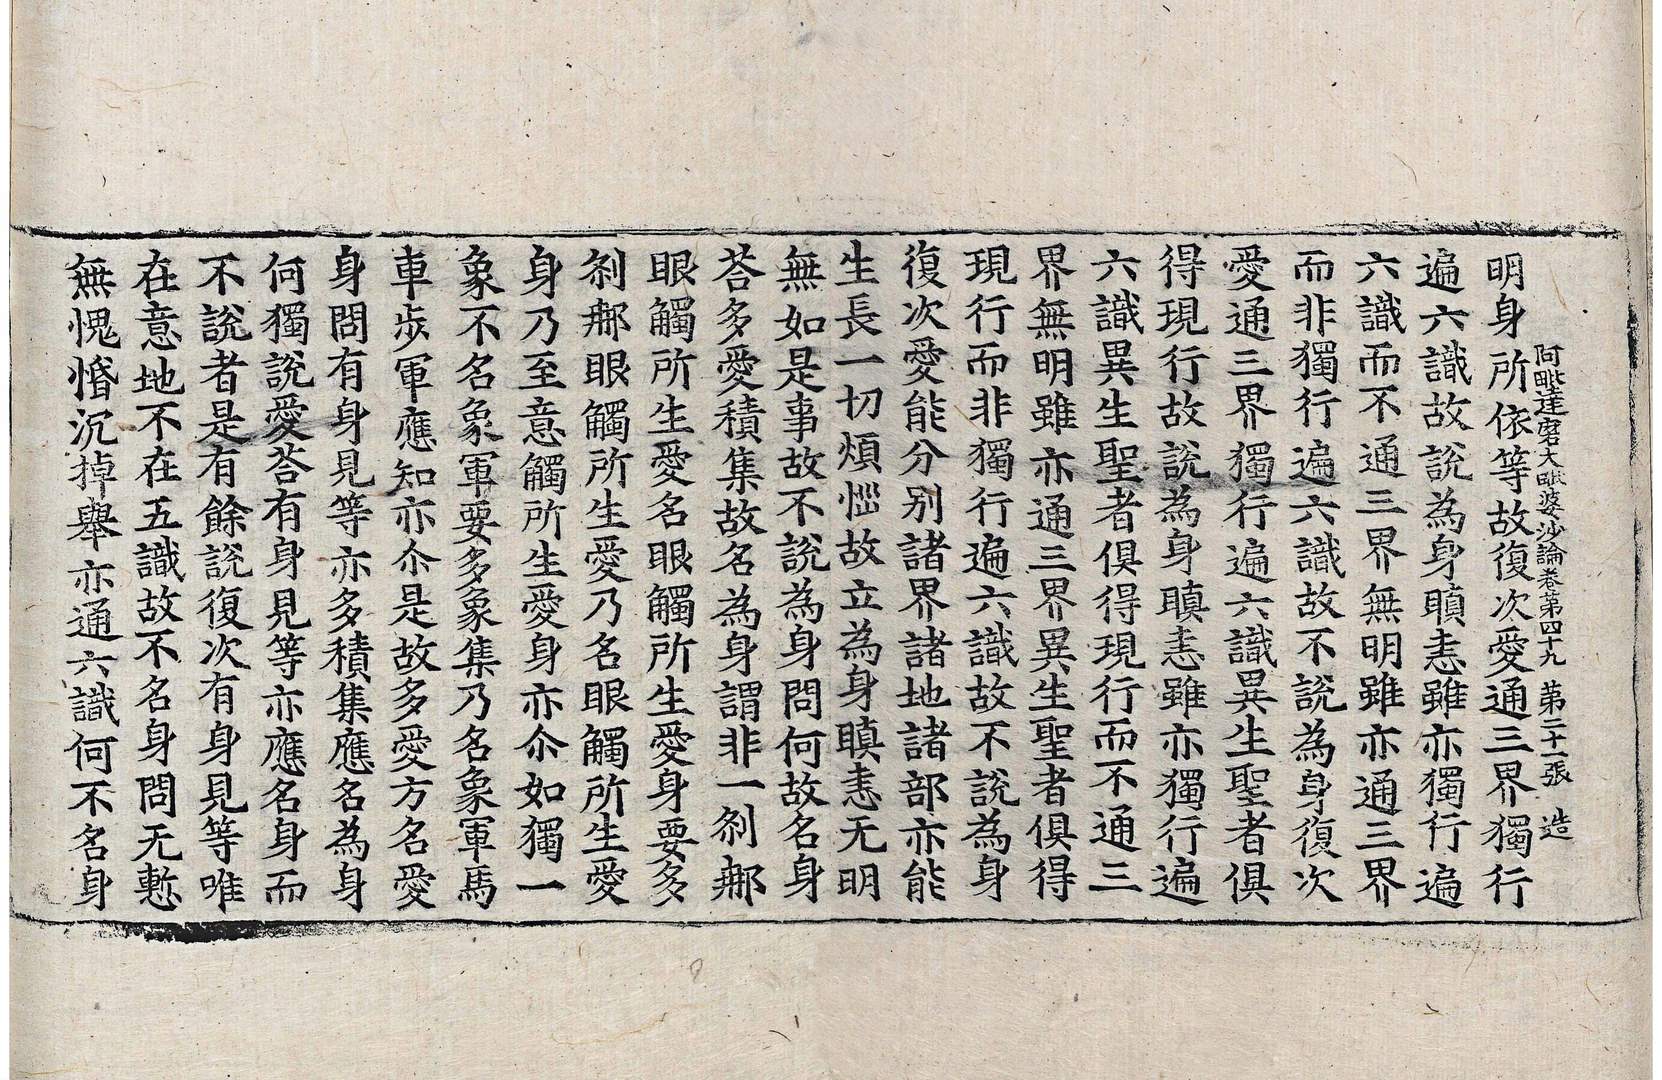 阿毗達磨大毗婆沙論卷第四十九　第二十一張　造
明身所依等故復次愛通三界獨行
遍六識故說為身瞋恚雖亦獨行遍
六識而不通三界無明雖亦通三界
而非獨行遍六識故不說為身復次
愛通三界獨行遍六識異生聖者俱
得現行故說為身瞋恚雖亦獨行遍
六識異生聖者俱得現行而不通三
界無明雖亦通三界異生聖者俱得
現行而非獨行遍六識故不說為身
復次愛能分別諸界諸地諸部亦能
生長一切煩惱故立為身瞋恚无明
無如是事故不說為身問何故名身
荅多愛積集故名為身謂非一剎那
眼觸所生愛名眼觸所生愛身要多
剎那眼觸所生愛乃名眼觸所生愛
身乃至意觸所生愛身亦尒如獨一
象不名象軍要多象集乃名象軍馬
車步軍應知亦尒是故多愛方名愛
身問有身見等亦多積集應名為身
何獨說愛荅有身見等亦應名身而
不說者是有餘說復次有身見等唯
在意地不在五識故不名身問无慙
無愧惛沉掉舉亦通六識何不名身